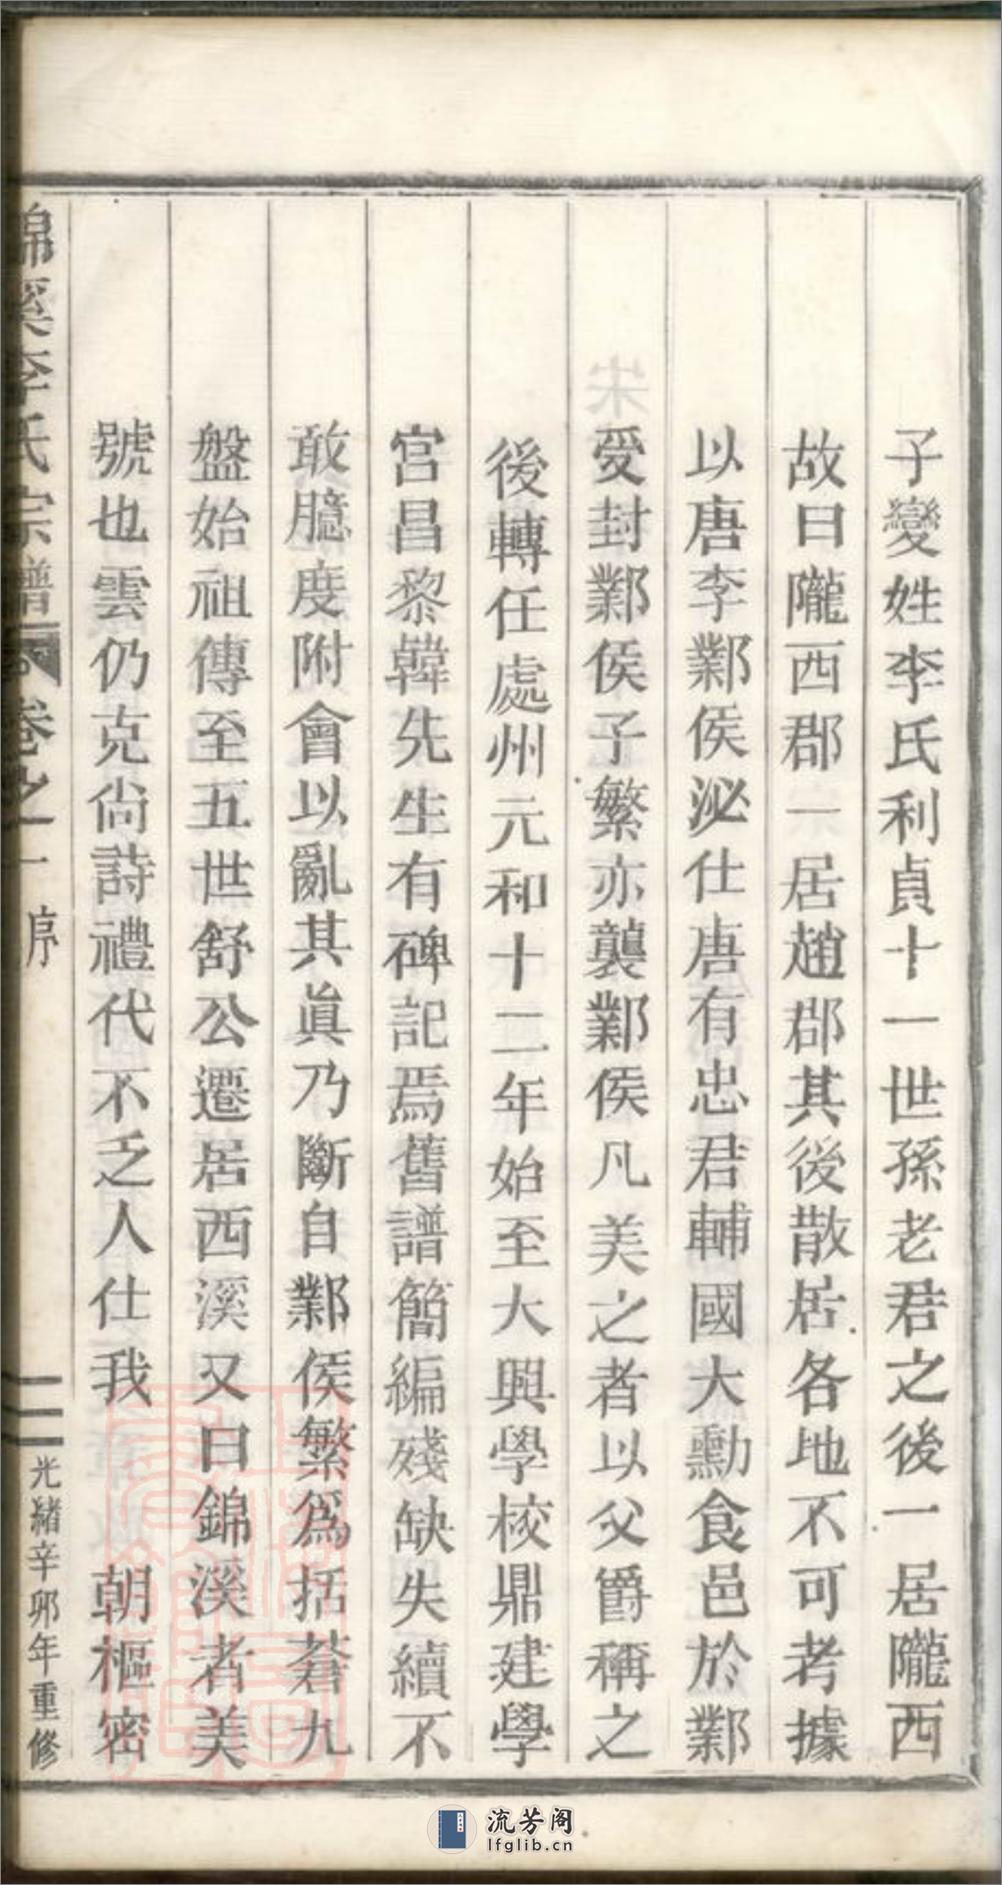 子變姓李氏利貞十一世孫老君之後一居隴西
故曰隴西郡一居趙郡其後散居各地不可考據
以唐李鄴侯泌仕唐有忠君輔國大勳食邑於鄴
受封鄴侯子繁亦襲鄴侯凡美之者以父爵稱之
後轉任處州元和十二年始至大興學校鼎建學
宮昌黎韓先生有碑記焉舊譜簡編殘缺失續不
敢臆度附會以亂其眞乃斷自鄴侯繁爲括蒼九
盤始祖傳至五世舒公遷居西溪又曰錦溪者美
號也雲仍克尙詩禮代不乏人仕我 朝樞密
錦溪李氏宗譜 卷之一 序 光緒辛卯年重修
流芳阁
lfglib.cn